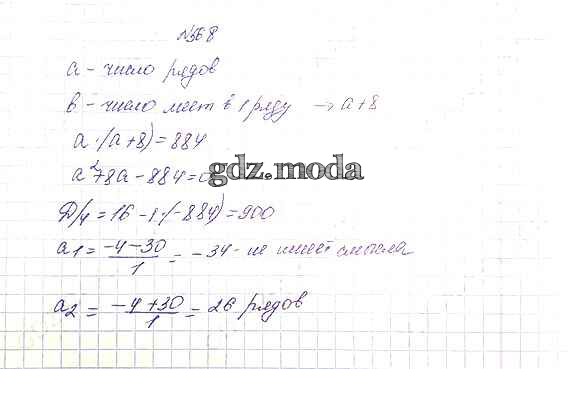 №568
а - число рядов
в - число мест в 1 ряду → а+8
а·(а+8)=884
а²+8а-884=0
gdz.moda
Д/4=16-1·(-884)=900
а1= -4-30/1 = -34 - не имеет смысла
а2= -4+30/1 = 26 рядов